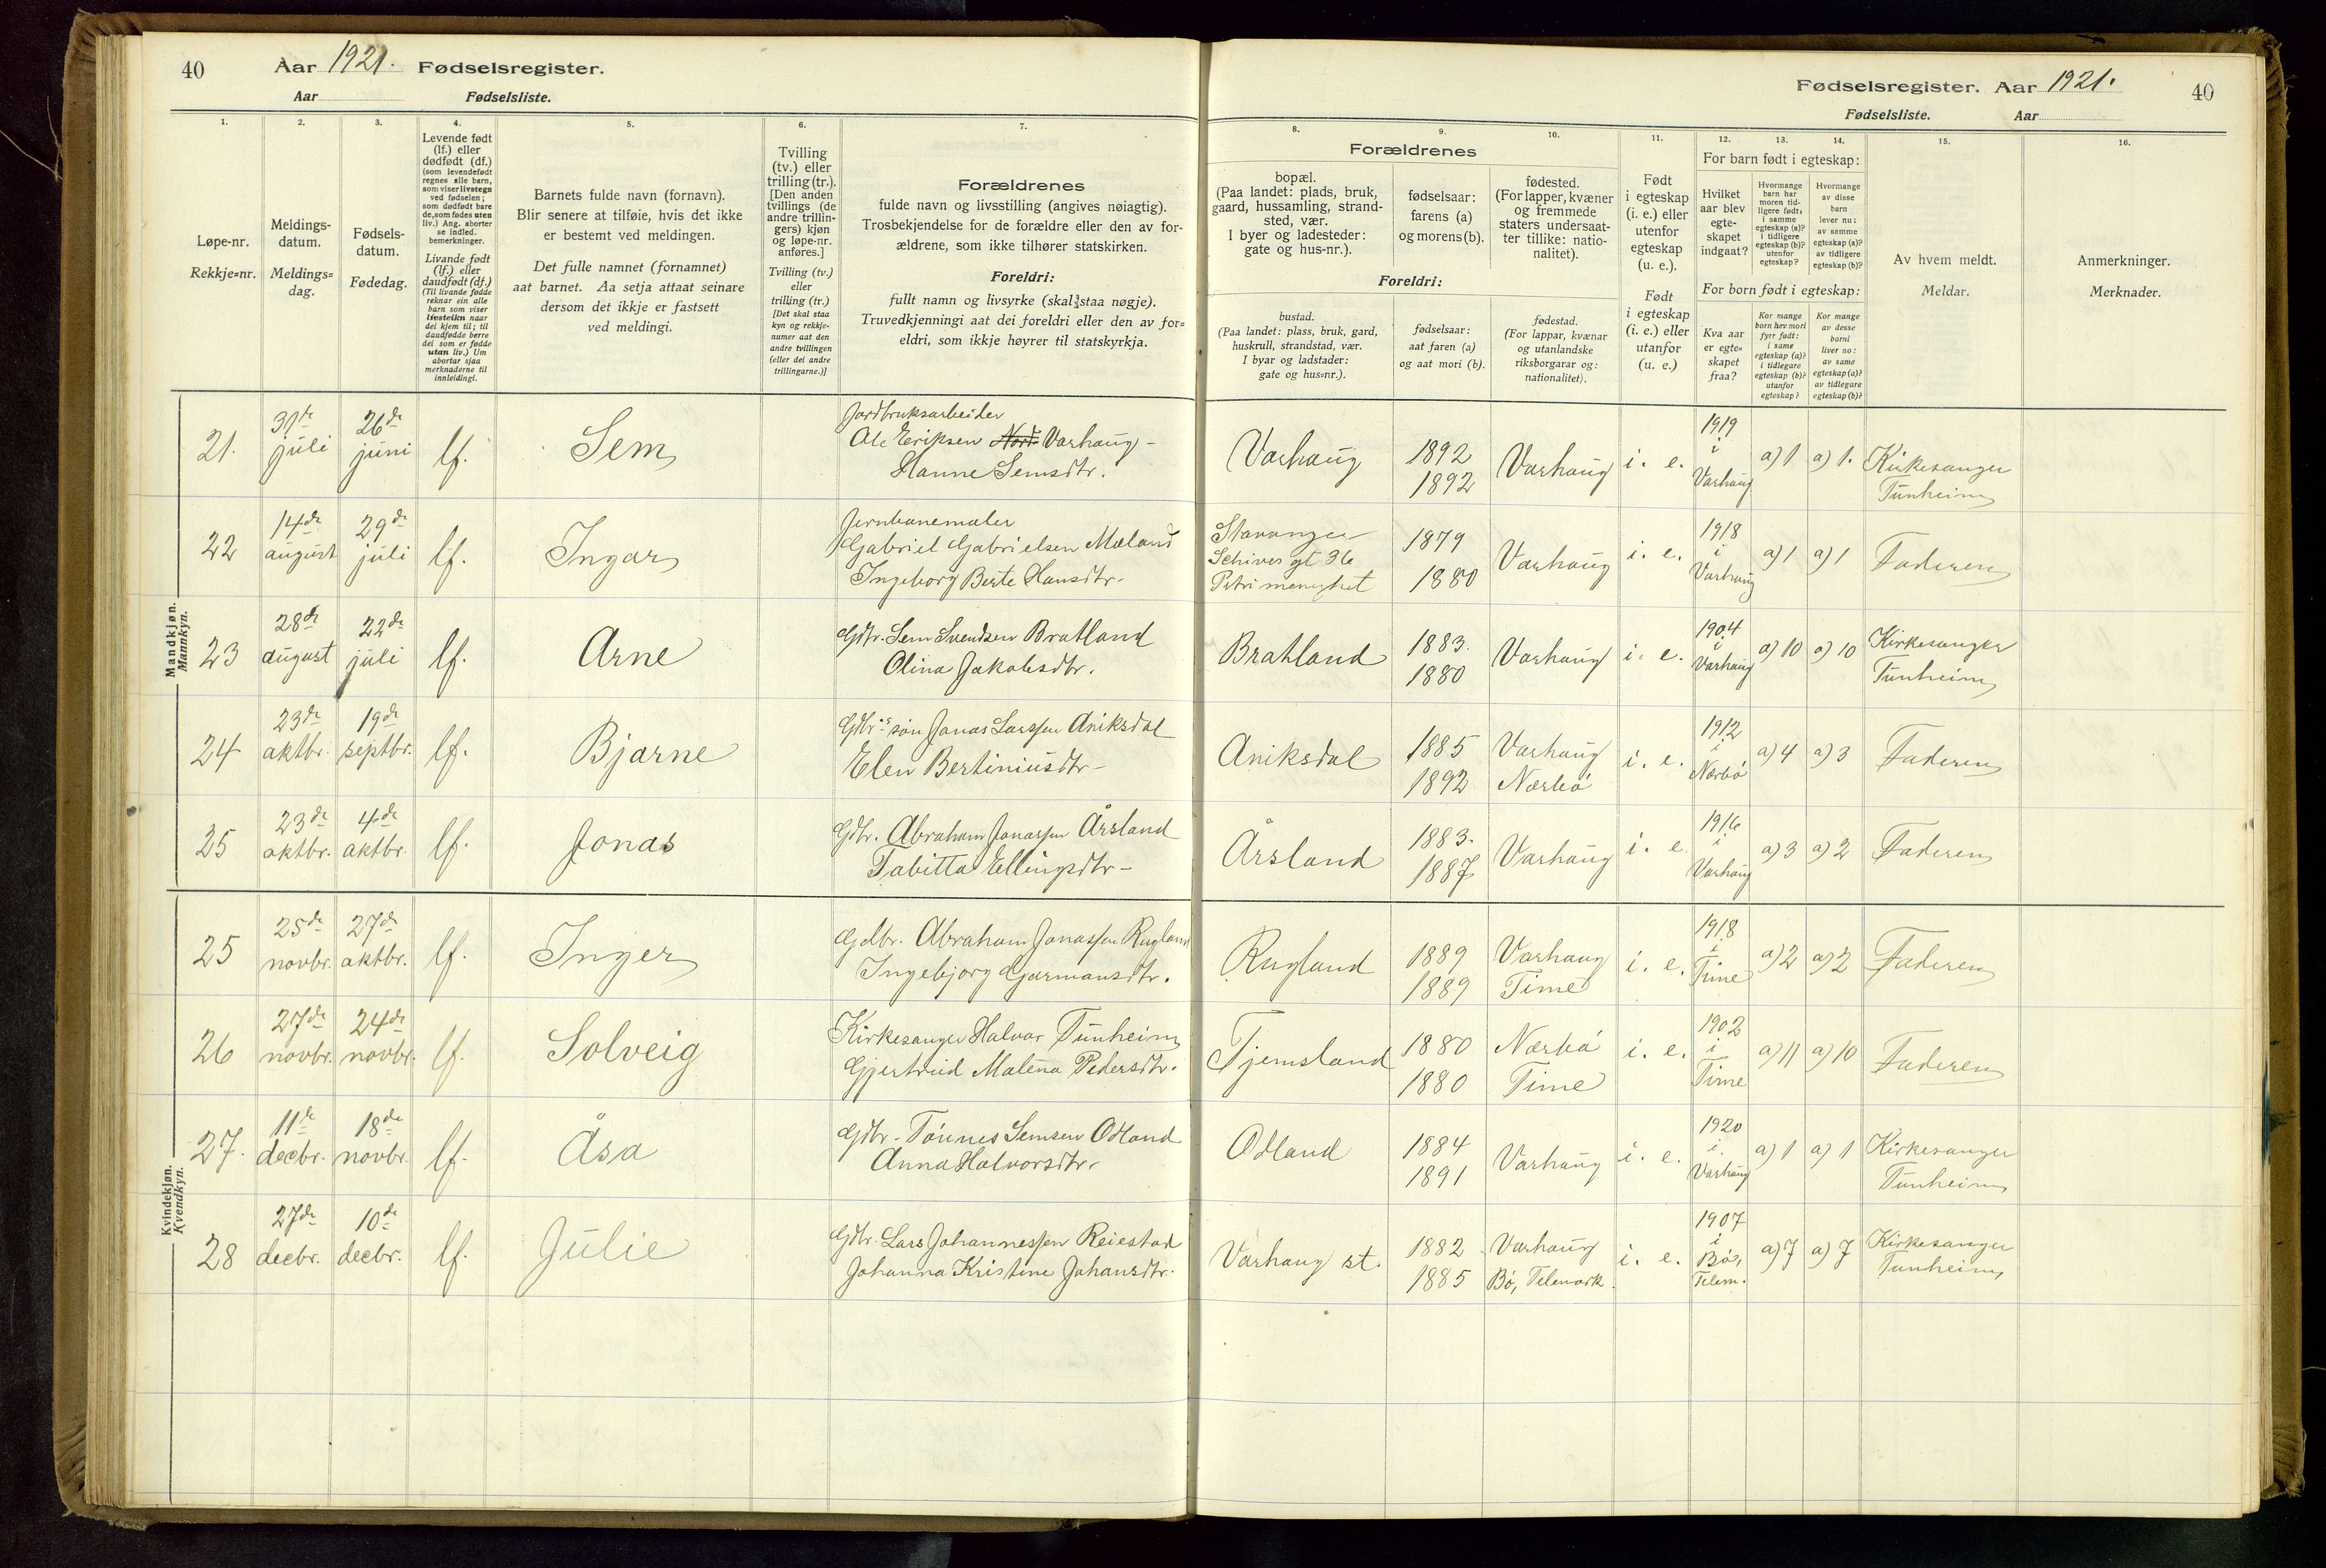 40 Aar 1921. Fødselsregister.
Aar Fødselsliste.
Fødselsregister. Aar 1921. 40
Fødselsliste. Aar
1. 2. 3. 4. 5. 6. 7.
8. 9. 10. 11. 12. 13. 14. 15. 16.
Løpe-nr.
Rekkje=nr.
Meldings-
datum.
Meldings=
dag.
Fødsels-
datum.
Fødedag.
Levende født
(lf.) eller
dødfødt (df.)
(som levendefødt
regnes alle barn,
som viser livstegn
ved fødselen;
som dødfødt bare
de, som fødes uten
liv.) Ang. aborter
se indled.
bemerkninger.
Livande født
(lf.) eller
daudfødt (df.)
(Til livande fødde
reknar ein alle
barn som viser
livsteikn naar
dei kjem til; til
daudfødde berre
dei som er fødde
utan liv.) Um
abortar sjaa
merknaderne til
innleidingi.
Barnets fulde navn (fornavn).
Blir senere at tilføie, hvis det ikke
er bestemt ved meldingen.
Det fulle namnet (fornamnet)
aat barnet. Aa setja attaat seinare
dersom det ikkje er fastsett
ved meldingi.
Tvilling
(tv.) eller
trilling (tr.).
[Den anden
tvillings (de
andre trillin-
gers) kjøn
og løpe-nr.
anføres.]
Tvilling (tv.)
eller
trilling (tr.)
[Det skal staa
kyn og rekkje-
numer aat den
andre tvillingen
(eller dei andre
trillingarne.)]
Forældrenes
fulde navn og livsstilling (angives nøiagtig).
Trosbekjendelse for de forældre eller den av for-
ældrene, som ikke tilhører statskirken.
Foreldri:
fullt namn og livsyrke (skal staa nøgje).
Truvedkjenningi aat dei foreldri eller den av for=
eldri, som ikkje høyrer til statskyrkja.
Forældrenes
bopæl.
(Paa landet: plads, bruk,
gaard, hussamling, strand-
sted, vær.
I byer og ladesteder:
gate og hus-nr.).
fødselsaar:
farens (a)
og morens (b).
fødested.
(For lapper, kvæner
og fremmede
staters undersaat-
ter tillike: natio-
nalitet).
Foreldri:
bustad.
(Paa landet: plass, bruk, gard,
huskrull, strandstad, vær.
I byar og ladstader:
gate og hus=nr.).
fødselsaar:
aat faren (a)
og aat mori (b).
fødestad.
(For lappar, kvænar
og utanlandske
riksborgarar og:
nationalitet).
Født
i egteskap
(i. e.) eller
utenfor
egteskap
(u. e.).
Født
i egteskap
(i. e.) eller
utanfor
(u. e.)
For barn født i egteskap:
Hvilket
aar blev
egte-
skapet
indgaat?
Hvormange
barn har
moren tid-
ligere født:
i samme
egteskap (a)?
i tidligere
egteskap (b)?
utenfor
egteskap?
Hvormange
av disse
barn
lever nu:
av samme
egteskap (a)?
av tidligere
egteskap (b)?
For born født i egteskap:
Kva aar
er egte=
skapet
fraa?
Kor mange
born hev mori
fyrr født:
i same
egteskap (a)?
i tidlegare
egteskap (b)?
utanfor
egteskap?
Kor mange
av desse
borni
liver no:
av same
egteskap (a)?
av tidlegare
egteskap (b)?
Av hvem meldt.
Meldar.
Anmerkninger.
Merknader.
Mandkjøn.
Mannkyn.
21. 31te juli 26de juni lf. Sem
Jordbruksarbeider
Ole Eriksen Nord- Varhaug -
Hanne Semsdtr.
Varhaug 1892 1892 Varhaug i. e. 1919 i Varhaug a) 1 a) 1. Kirkesanger Tunheim
22 14de august 29de juli lf. Ingar
Jernbanemaler
Gabriel Gabrielsen Mæland
Ingeborg Berte Hansdtr.
Stavanger
Schives gt 36
Petri menighet
1879 1880 Varhaug i. e. 1918 i Varhaug a) 1 a) 1 Faderen
23 28de august 22de juli lf. Arne
Gdbr. Sem Svendsen Bratland
Olina Jakobsdtr.
Bratland 1883. 1880 Varhaug i. e. 1904 i Varhaug a) 10 a) 10 Kirkesanger Tunheim
24 23de oktbr. 19de septbr. lf. Bjarne
Gdbr.s søn Jonas Larssen Aniksdal
Elen Bertiniusdtr-
Aniksdal 1885 1892 Varhaug Nærbø i. e. 1912 i Nærbø a) 4 a) 3 Faderen
25 23de oktbr. 4de oktbr. lf. Jonas
Gdbr. Abraham Jonassen Årsland
Tabitta Ellingsdtr-
Årsland 1883. 1887 Varhaug i. e. 1916 i Varhaug a) 3 a) 2 Faderen
Kvindekjøn.
Kvendkyn.
25 25de novbr. 27de oktbr. lf. Inger
Gdbr. Abraham Jonassen Rugland
Ingebjorg Garmansdtr.
Rugland 1889 1889 Varhaug Time i. e. 1918 i Time a) 2 a) 2 Faderen
26 27de novbr. 24de novbr. lf. Solveig
Kirkesanger Halvor Tunheim
Gjertrud Malena Pedersdtr.
Tjemsland 1880 1880 Nærbø Time i. e. 1902 i Time a) 11 a) 10 Faderen
27. 11te decbr. 18de novbr. lf. Åsa
Gdbr. Tönnes Semsen Odland
Anna Halvorsdtr.
Odland 1884 1891 Varhaug i. e. 1920 i Varhaug a) 1 a) 1 Kirkesanger Tunheim
28 27de decbr. 10de decbr. lf. Julie
Gdbr. Lars Johannessen Reiestad
Johanna Kristine Johansdtr.
Varhaug st. 1882 1885 Varhaug Bø, Telemark. i. e. 1907 i Bø, Telem. a) 7 a) 7 Kirkesanger Tunheim